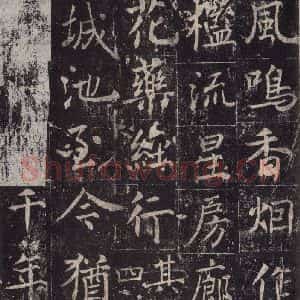 風鳴香烟
檻流星房廊
花藥行其四
城池至今猶
千年
Shufawang.Cn